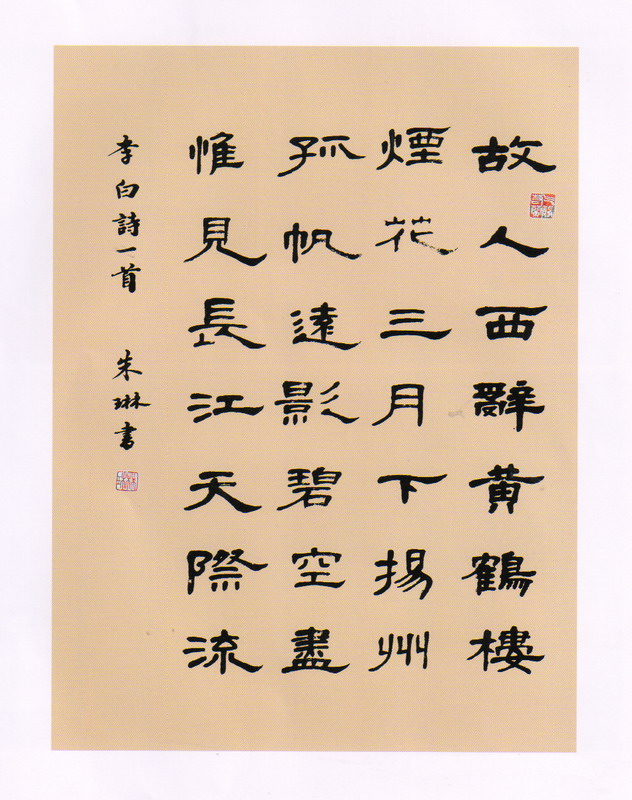 故人西辭黃鶴樓
煙花三月下揚州
孤帆遠影碧空盡
惟見長江天際流
李白詩一首 朱琳書